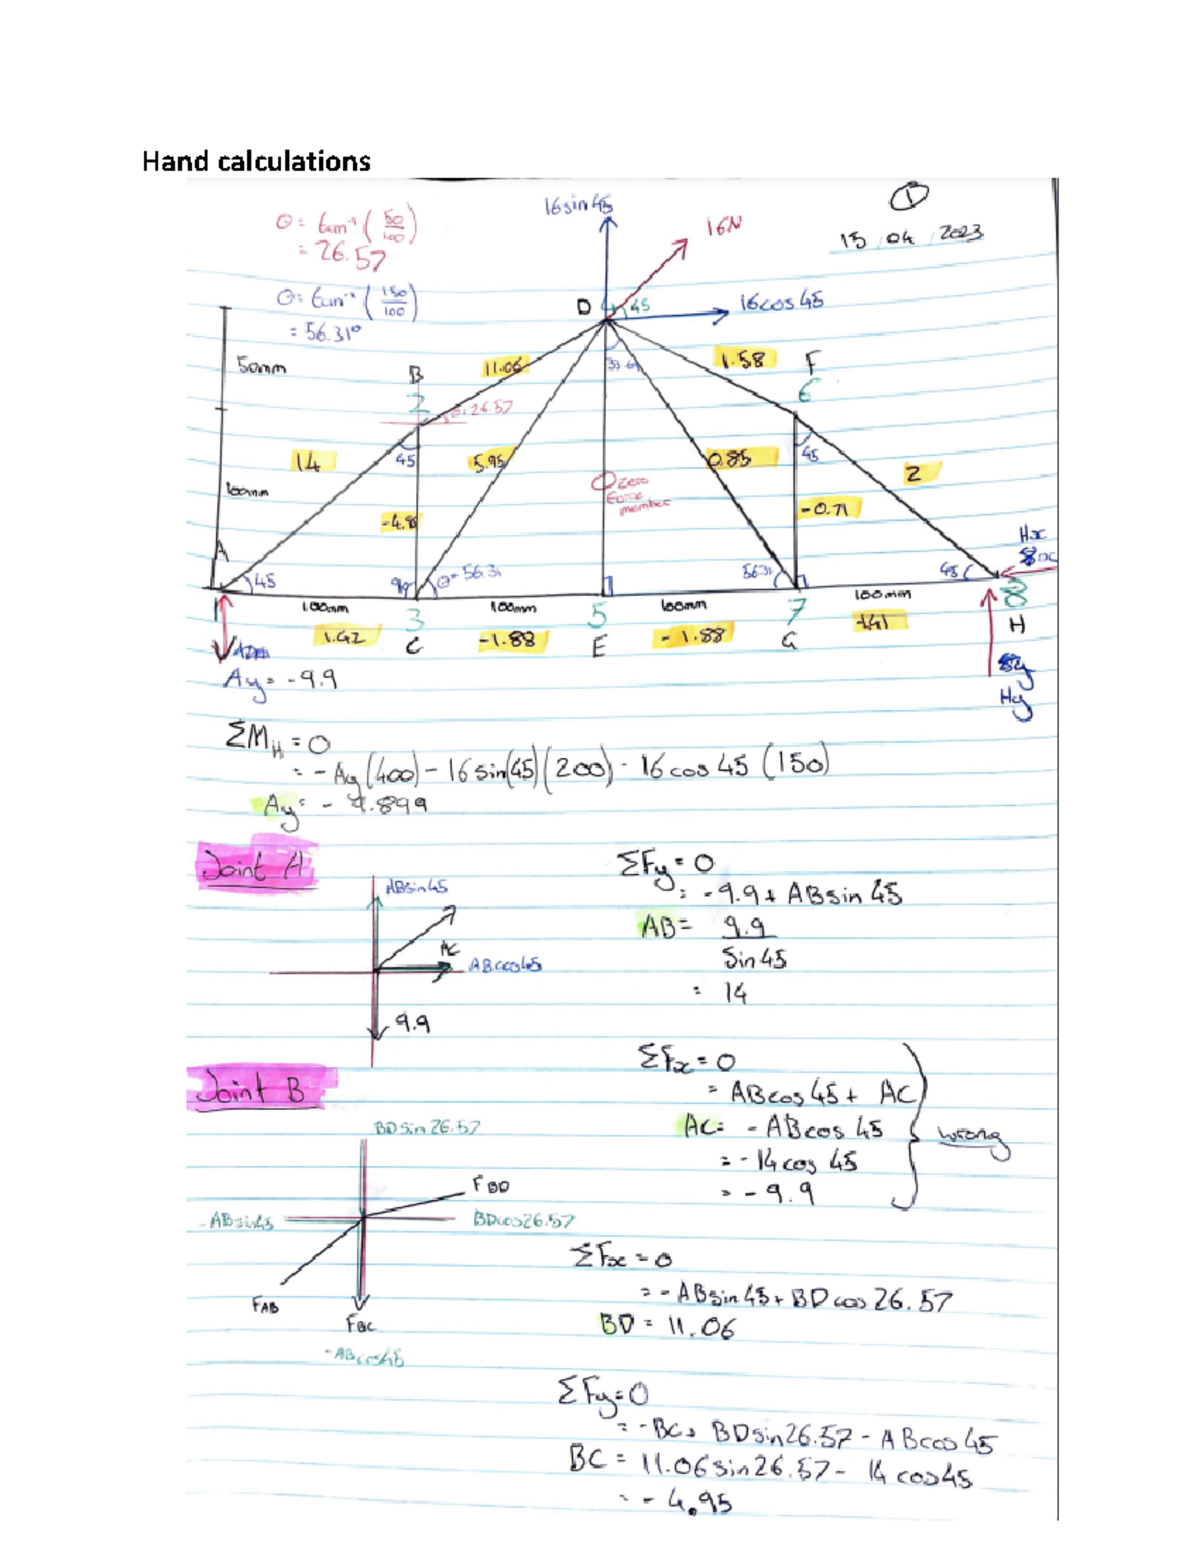 Hand calculations
①
15 / 04 / 2023
θ = tan⁻¹ (50/100)
= 26.57
θ = tan⁻¹ (150/100)
= 56.31°
16 sin 45
16N
D 4 45
16 cos 45
50mm
B
2
11.06
33.69
1.58
F
6
θ = 26.57
14
45
5.95
0.85
45
2
100mm
Zero
Force
member
-4.9
-0.71
A
45
90
θ = 56.31
56.31
45
Hx
100mm
100mm
100mm
100mm
1
3
5
7
8
1.42
C
-1.88
E
-1.88
G
H
Ay = -9.9
Hy
ΣM_H = 0
= -Ay(400) - 16 sin(45)(200) - 16 cos 45 (150)
Ay = - 9.899
Joint A
ABsin45
AC
ABcos45
9.9
ΣFy = 0
= -9.9 + ABsin 45
AB = 9.9
Sin 45
= 14
ΣFx = 0
= ABcos 45 + AC
AC = - ABcos 45
= - 14 cos 45
= - 9.9
wrong
Joint B
BD sin 26.57
F BD
-ABsin45
BDcos26.57
FAB
FBC
-ABcos45
ΣFx = 0
= - ABsin 45 + BD cos 26.57
BD = 11.06
ΣFy = 0
= -BC + BDsin 26.57 - ABcos 45
BC = 11.06 sin 26.57 - 14 cos 45
= - 4.95